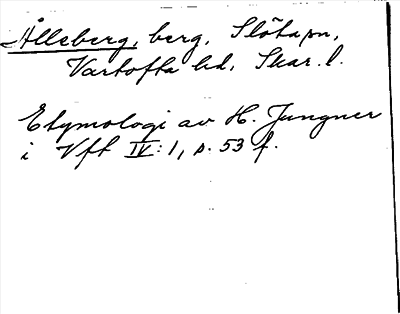 Ålleberg, berg, Slöta sn,
Vartofta hd, Skar. l.
Etymologi av H. Jungner
i Vft IV: 1, s. 53 f.